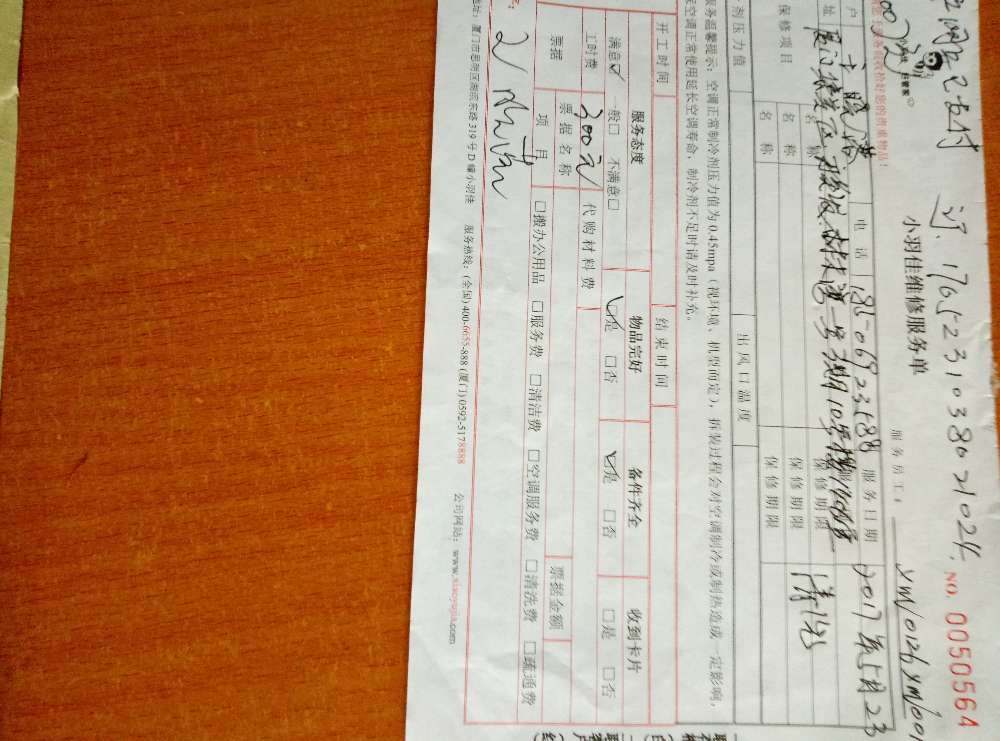 已支付
订:1765231038021024.
NO. 0050564
小羽佳维修服务单
服务员工:
户 电话 18506923588 服务日期 2017年5月23
址 厦门
保修项目 名称 保修期限
名称 保修期限 清洗
名称 保修期限
剂压力值 出风口温度
服务温馨提示:空调正常制冷剂压力值为0.45mpa(视环境、机型而定),拆装过程会对空调制冷或制热造成一定影响,
空调正常使用延长空调寿命,制冷剂不足时请及时补充。
开工时间 结束时间
服务态度 物品完好 备件齐全 收到卡片
满意☑ 一般□ 不满意□ ☑是 □否 ☑是 □否 □是 □否
工时费 200元 代购材料费
票据 票据名称 票据金额
项目 □搬办公用品 □服务费 □清洁费 □空调服务费 □清洗费 □疏通费
地址:厦门市思明区湖滨东路319号D幢小羽佳 服务热线:(全国)400-6655-888 (厦门)0592-5178888 公司网站:www.xiaoyujia.com